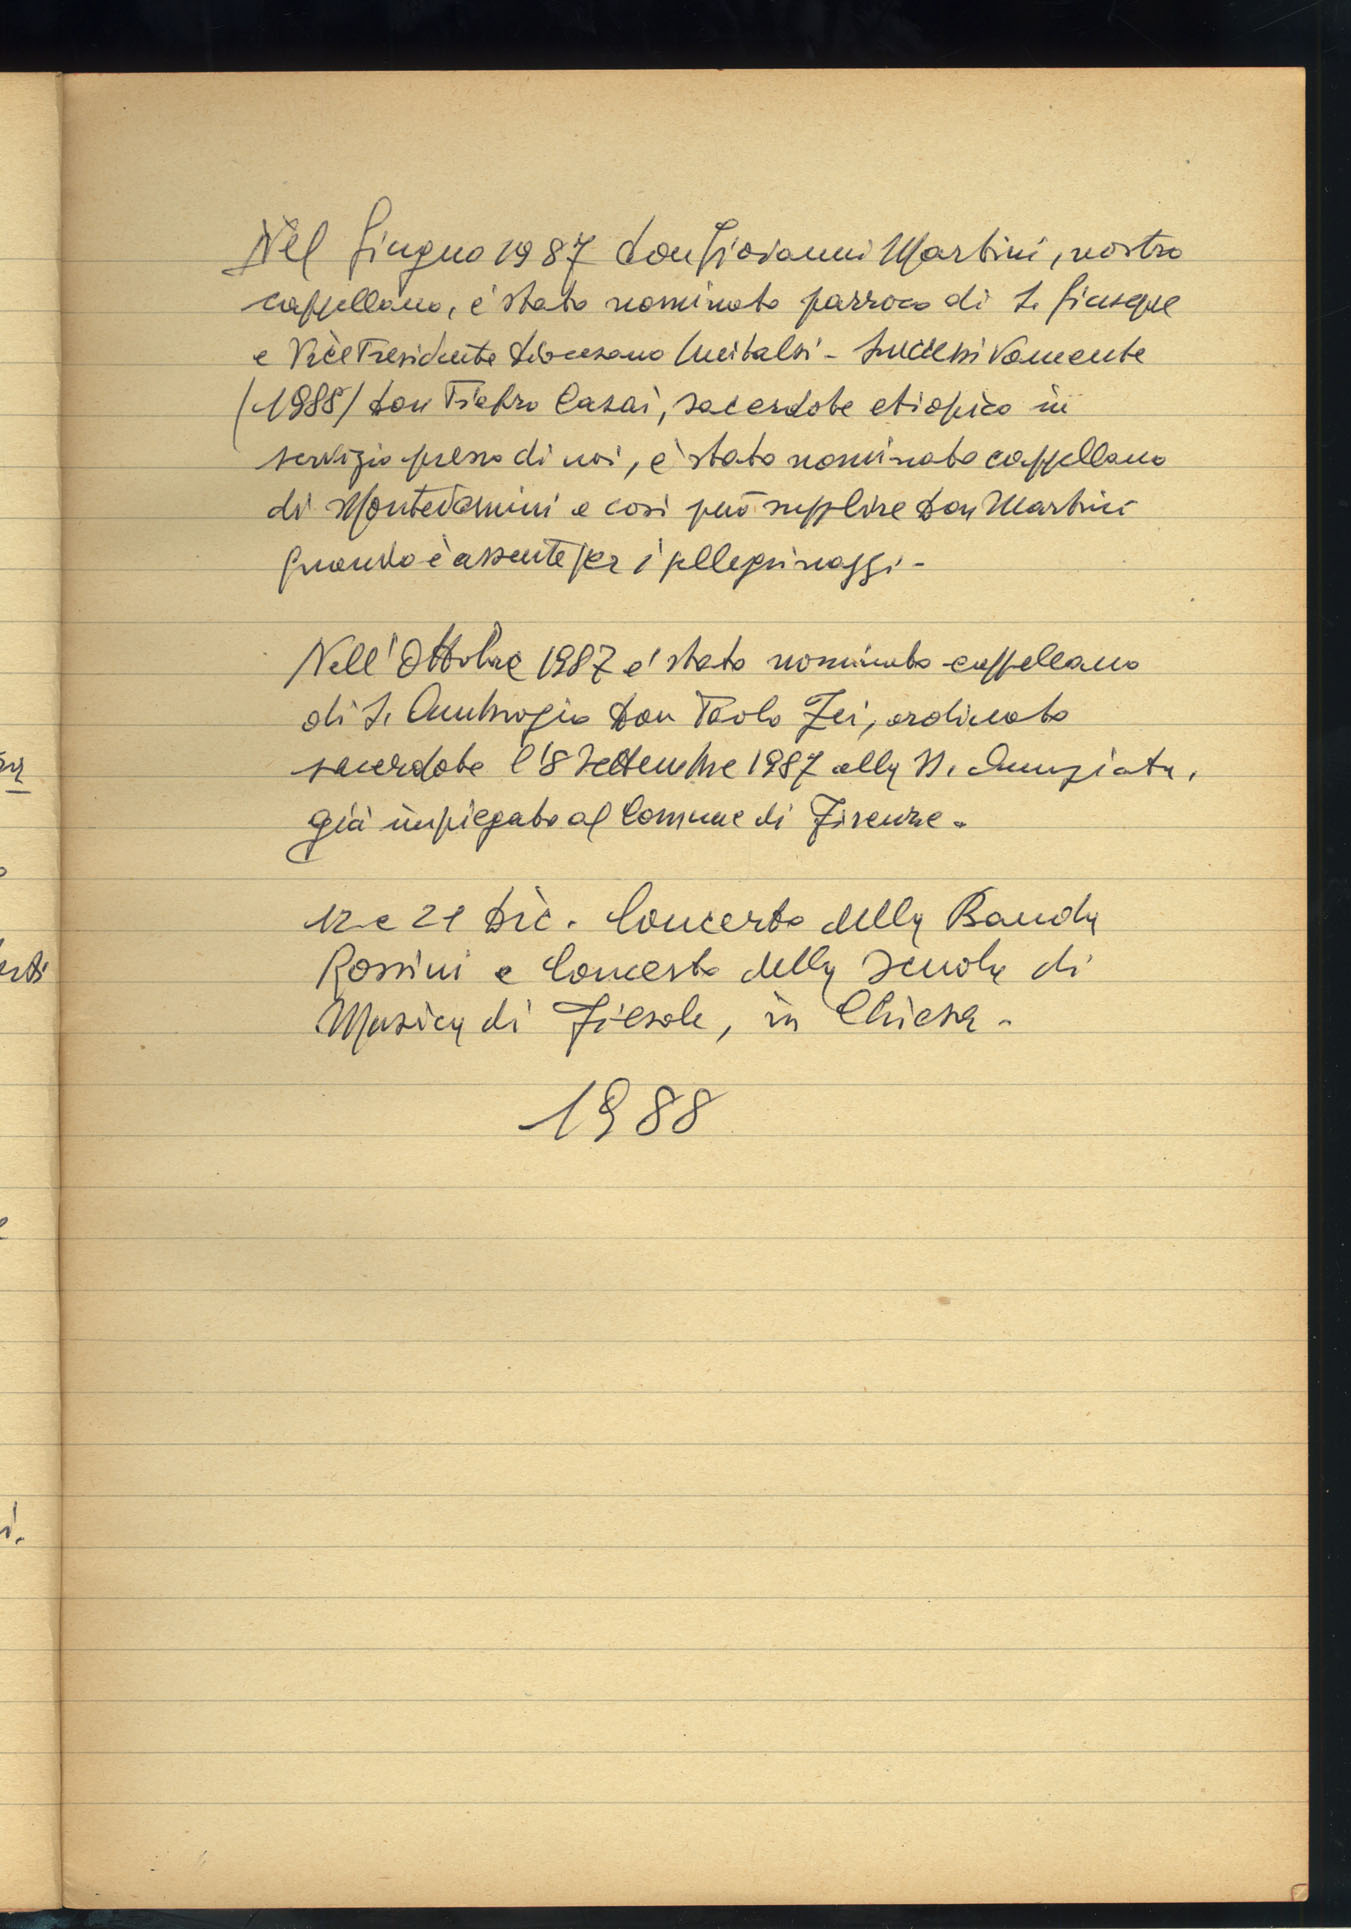 Nel Giugno 1987 don Giovanni Martini, nostro
cappellano, è stato nominato parroco di S. Giuseppe
e Vice Presidente Diocesano Unitalsi - Successivamente
(1988) don Casai, sacerdote etiopico in
servizio presso di noi, è stato nominato cappellano
di Montedomini e così può supplire Don Martini
quando è assente per i pellegrinaggi -
Nell'Ottobre 1987 è stato nominato cappellano
di S. Ambrogio Don Paolo Zei, ordinato
sacerdote l'8 Settembre 1987 alla SS. Annunziata,
già impiegato al Comune di Firenze -
12 e 21 Dic. Concerto della Banda
Rossini e Concerto della Scuola di
Musica di Fiesole, in Chiesa -
1988